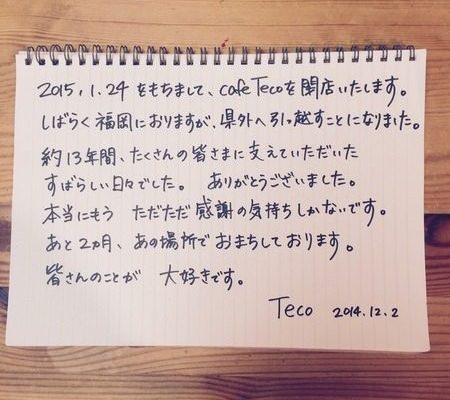 2015.1.24 をもちまして、cafe Tecoを閉店いたします。
しばらく福岡におりますが、県外へ引っ越すことになりました。
約13年間、たくさんの皆さまに支えていただいた
すばらしい日々でした。 ありがとうございました。
本当にもう ただただ感謝の気持ちしかないです。
あと2ヵ月、あの場所でおまちしております。
皆さんのことが 大好きです。
Teco 2014.12.2